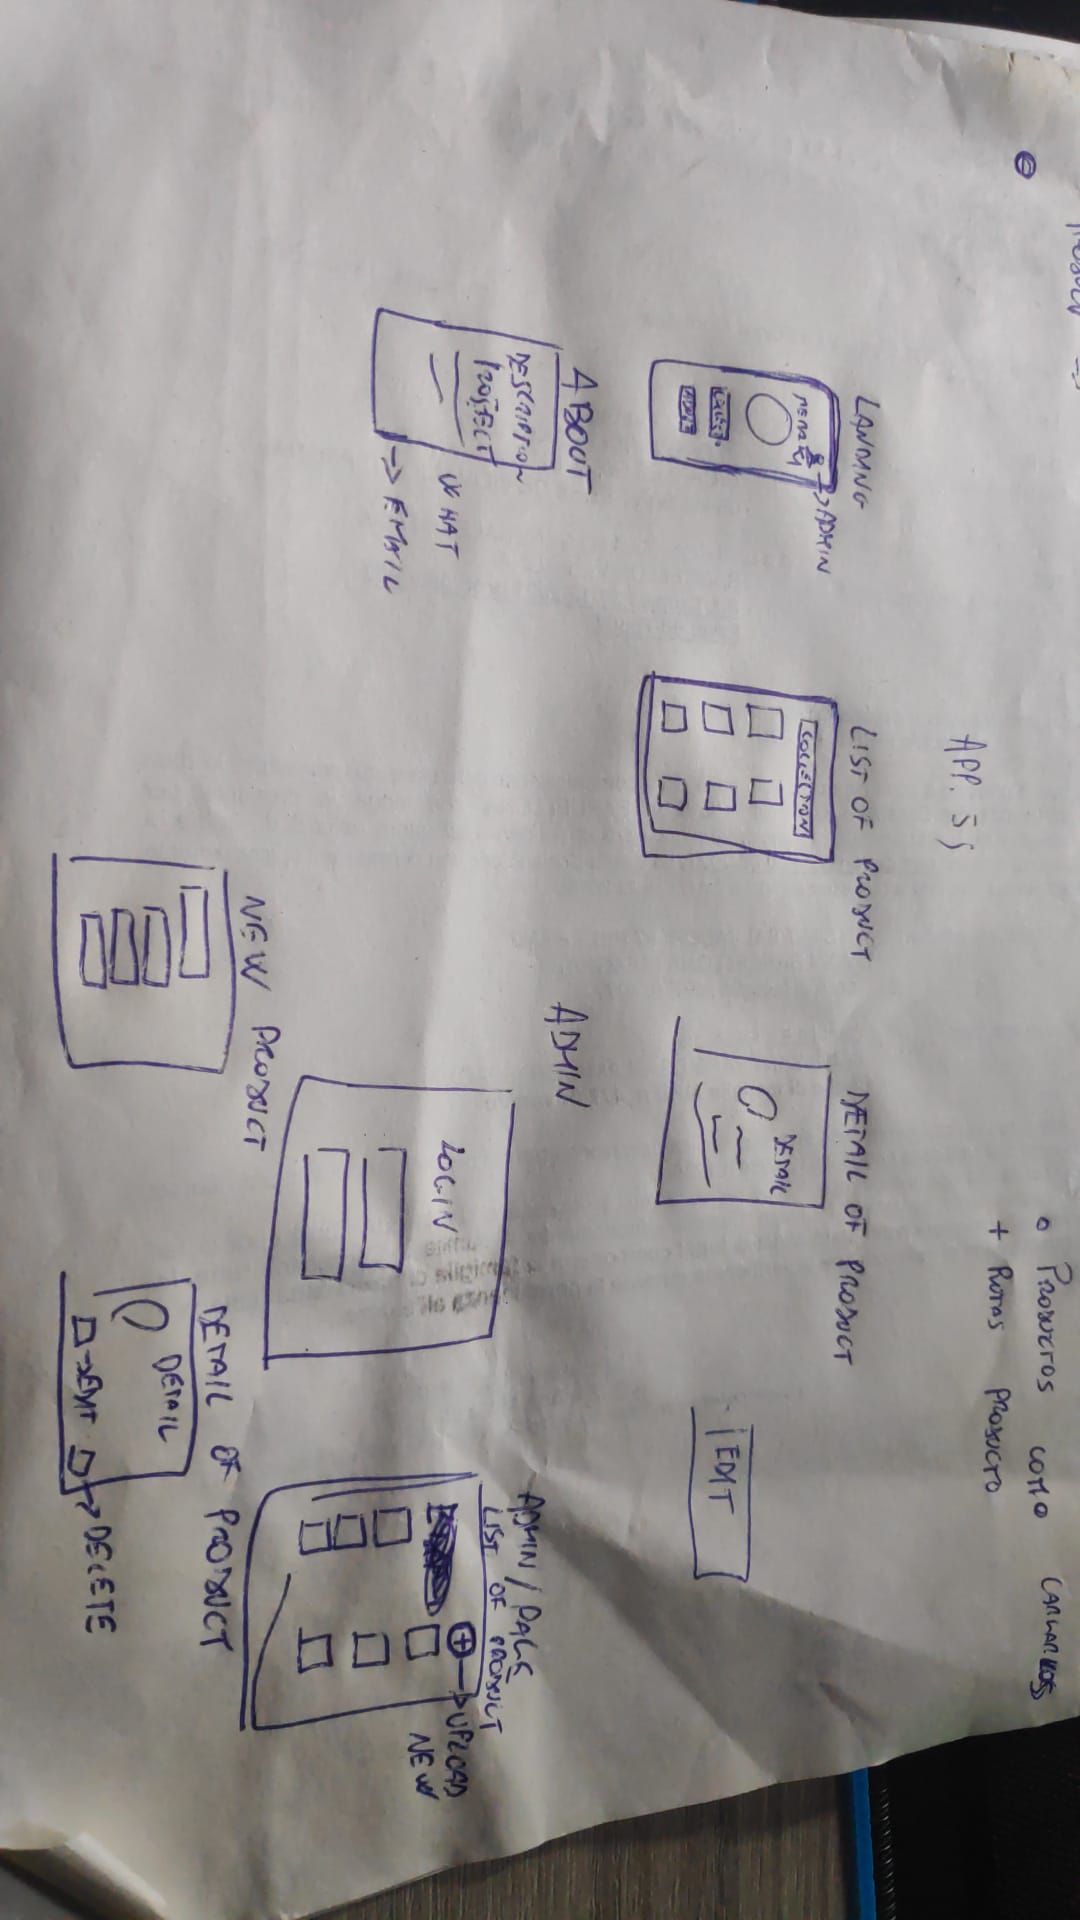 APP. JS
° PRODUCTOS COMO
+ RUTAS PRODUCTO
LANDING
→ ADMIN
LIST OF PRODUCT
COLLECTION
DETAIL OF PRODUCT
DETAIL
EDIT
ABOUT
DESCRIPTION
PROJECT
WHAT
→ EMAIL
ADMIN
LOGIN
ADMIN / PAGE
LIST OF PRODUCT
→ UPLOAD
NEW
NEW PRODUCT
DETAIL OF PRODUCT
DETAIL
→ EDIT
→ DELETE